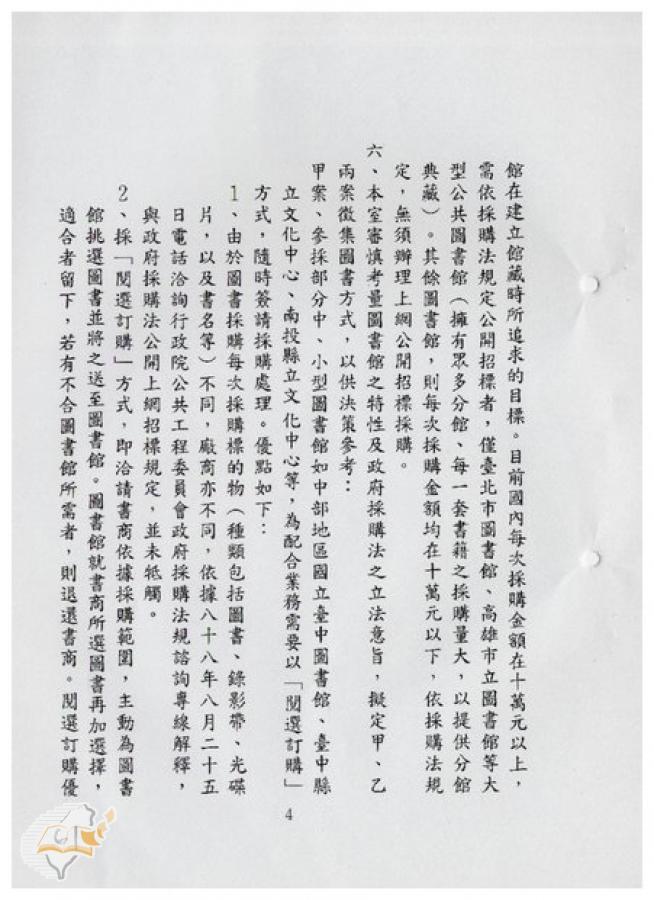 館在建立館藏時所追求的目標。目前國內每次採購金額在十萬元以上，
需依採購法規定公開招標者，僅臺北市圖書館、高雄市立圖書館等大
型公共圖書館（擁有眾多分館、每一套書籍之採購量大，以提供分館
典藏）。其餘圖書館，則每次採購金額均在十萬元以下，依採購法規
定，無須辦理上網公開招標採購。
六、本室審慎考量圖書館之特性及政府採購法之立法意旨，擬定甲、乙
兩案徵集圖書方式，以供決策參考：
甲案、參採部分中、小型圖書館如中部地區國立臺中圖書館、臺中縣
立文化中心、南投縣立文化中心等，為配合業務需要以「閱選訂購」
方式，隨時簽請採購處理。優點如下：
1、由於圖書採購每次採購標的物（種類包括圖書、錄影帶、光碟
片，以及書名等）不同，廠商亦不同，依據八十八年八月二十五
日電話洽詢行政院公共工程委員會政府採購法規諮詢專線解釋，
與政府採購法公開上網招標規定，並未牴觸。
2、採「閱選訂購」方式，即洽請書商依據採購範圍，主動為圖書
館挑選圖書並將之送至圖書館。圖書館就書商所選圖書再加選擇，
適合者留下，若有不合圖書館所需者，則退還書商。閱選訂購優
4